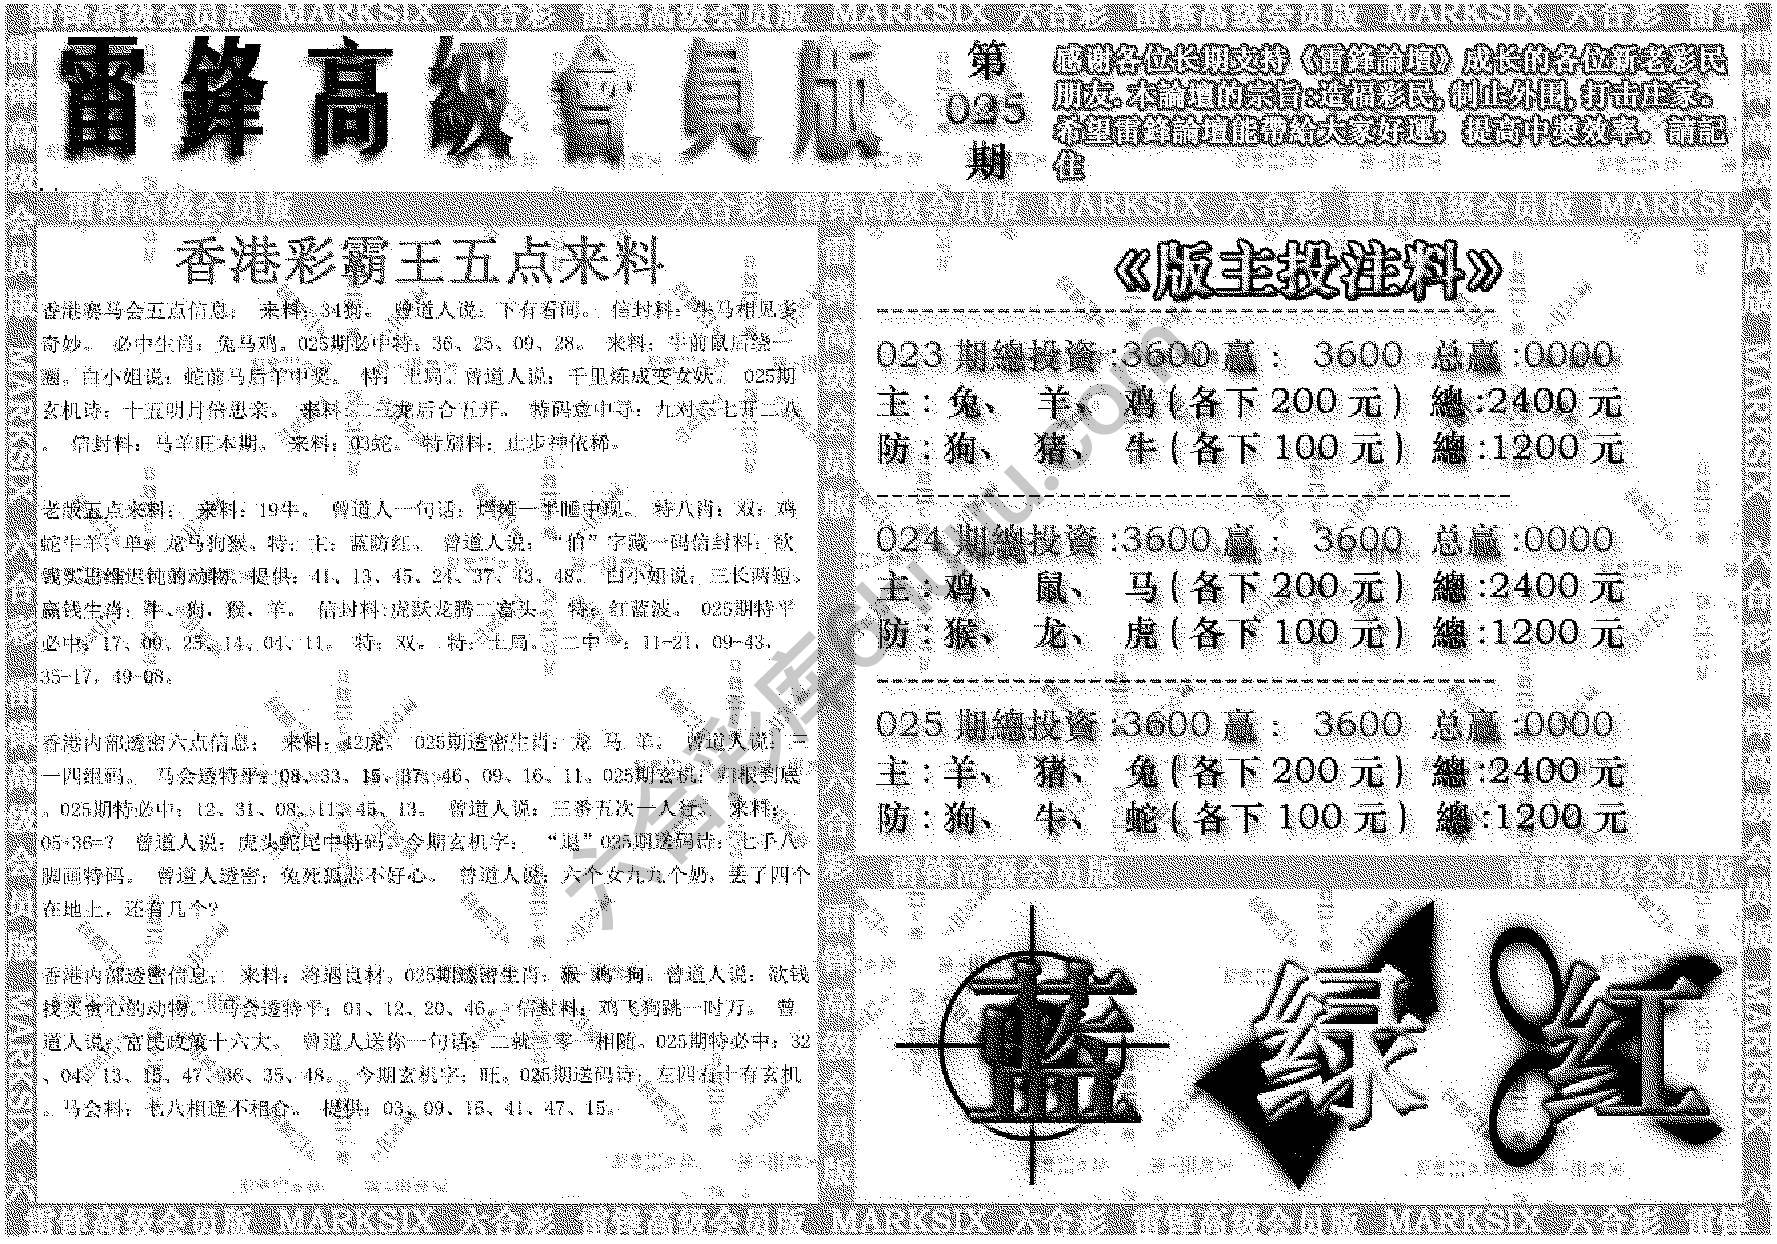 雷鋒高級會員版
第
025
期
感谢各位长期支持《雷鋒論壇》成长的各位新老彩民
朋友.本論壇的宗旨:造福彩民,制止外围,打击庄家。
希望雷鋒論壇能帶給大家好運，提高中奖效率，請記
住
香港彩霸王五点来料
香港赛马会五点信息： 来料：34狗。 曾道人说：下有看间。 信封料：牛马相见多
奇妙。 必中生肖：兔马鸡。025期必中特：36、25、09、28。 来料：牛前鼠后绕一
圈。白小姐说：蛇前马后羊中奖。 特：土局。曾道人说：千里炼成变女妖。 025期
玄机诗：十五明月倍思亲。 来料:二三龙后合五开。 特码意中寻：九对零七开二八
。 信封料：马羊旺本期。 来料：03蛇。 特别料：止步神依稀。
老版五点来料： 来料：19牛。 曾道人一句话： 特八肖：双：鸡
蛇牛羊；单：龙马狗猴。特：主：蓝防红。 曾道人说：“伯”字藏一码信封料：欲
钱买思维迟钝的动物。提供：41、13、45、24、37、43、48。 白小姐说：三长两短。
赢钱生肖：牛、狗、猴、羊。 信封料:虎跃龙腾二窗头。 特：红蓝波。 025期特平
必中：17、00、25、14、04、11。 特：双。 特：土局。 二中一：11-21，09-43，
35-17，49-08。
香港内部透密六点信息： 来料：42虎。 025期透密生肖：龙 马 羊。 曾道人说：一
一四组码。 马会透特平：08、33、15、37、46、09、16、11。025期玄机：归根到底
。025期特必中：12、31、08、11、45、13。 曾道人说：三番五次一人过。 来料：
05+36=? 曾道人说：虎头蛇尾中特码。今期玄机字： “退”025期送码诗：七手八
脚画特码。 曾道人透密：兔死狐悲不好心。 曾道人说：六个女九九个奶，丢了四个
在地上，还有几个?
香港内部透密信息： 来料：将遇良材。025期透密生肖：猴 鸡 狗。曾道人说：欲钱
找买贪心的动物。 马会透特平：01、12、20、46。 信封料：鸡飞狗跳一时万。 曾
道人说：富民政策十六大。 曾道人送你一句话：二就三零一相随。025期特必中：32
、04、13、15、47、36、35、48。 今期玄机字：旺。025期送码诗：左四右十有玄机
。马会料：七八相逢不相合。 提供：03、09、15、41、47、15。
《版主投注料》
023期總投資:3600赢： 3600 总赢:0000
主:兔、 羊、 鸡(各下200元) 總:2400元
防:狗、 猪、 牛(各下100元) 總:1200元
024期總投資:3600赢： 3600 总赢:0000
主:鸡、 鼠、 马(各下200元) 總:2400元
防:猴、 龙、 虎(各下100元) 總:1200元
025期總投資:3600赢： 3600 总赢:0000
主:羊、 猪、 兔(各下200元) 總:2400元
防:狗、 牛、 蛇(各下100元) 總:1200元
蓝 绿 红
六合彩库 chuku.com
雷鋒高级会员版 MARKSIX 六合彩 雷鋒高级会员版 MARKSIX 六合彩 雷鋒高级会员版 MARKSIX 六合彩 雷鋒